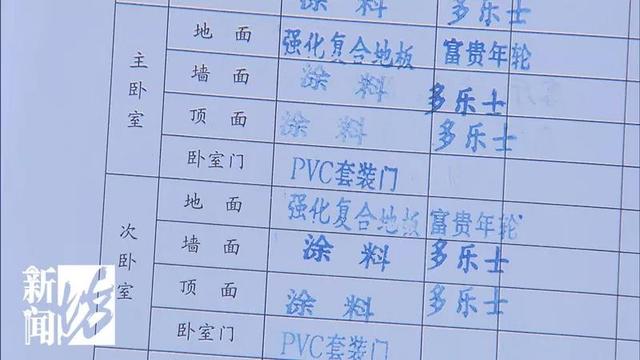 涂料 多乐士
主卧室
地面 强化复合地板 富贵年轮
墙面 涂料 多乐士
顶面 涂料 多乐士
卧室门 PVC套装门
次卧室
地面 强化复合地板 富贵年轮
墙面 涂料 多乐士
顶面 涂料 多乐士
卧室门 PVC套装门
新闻坊